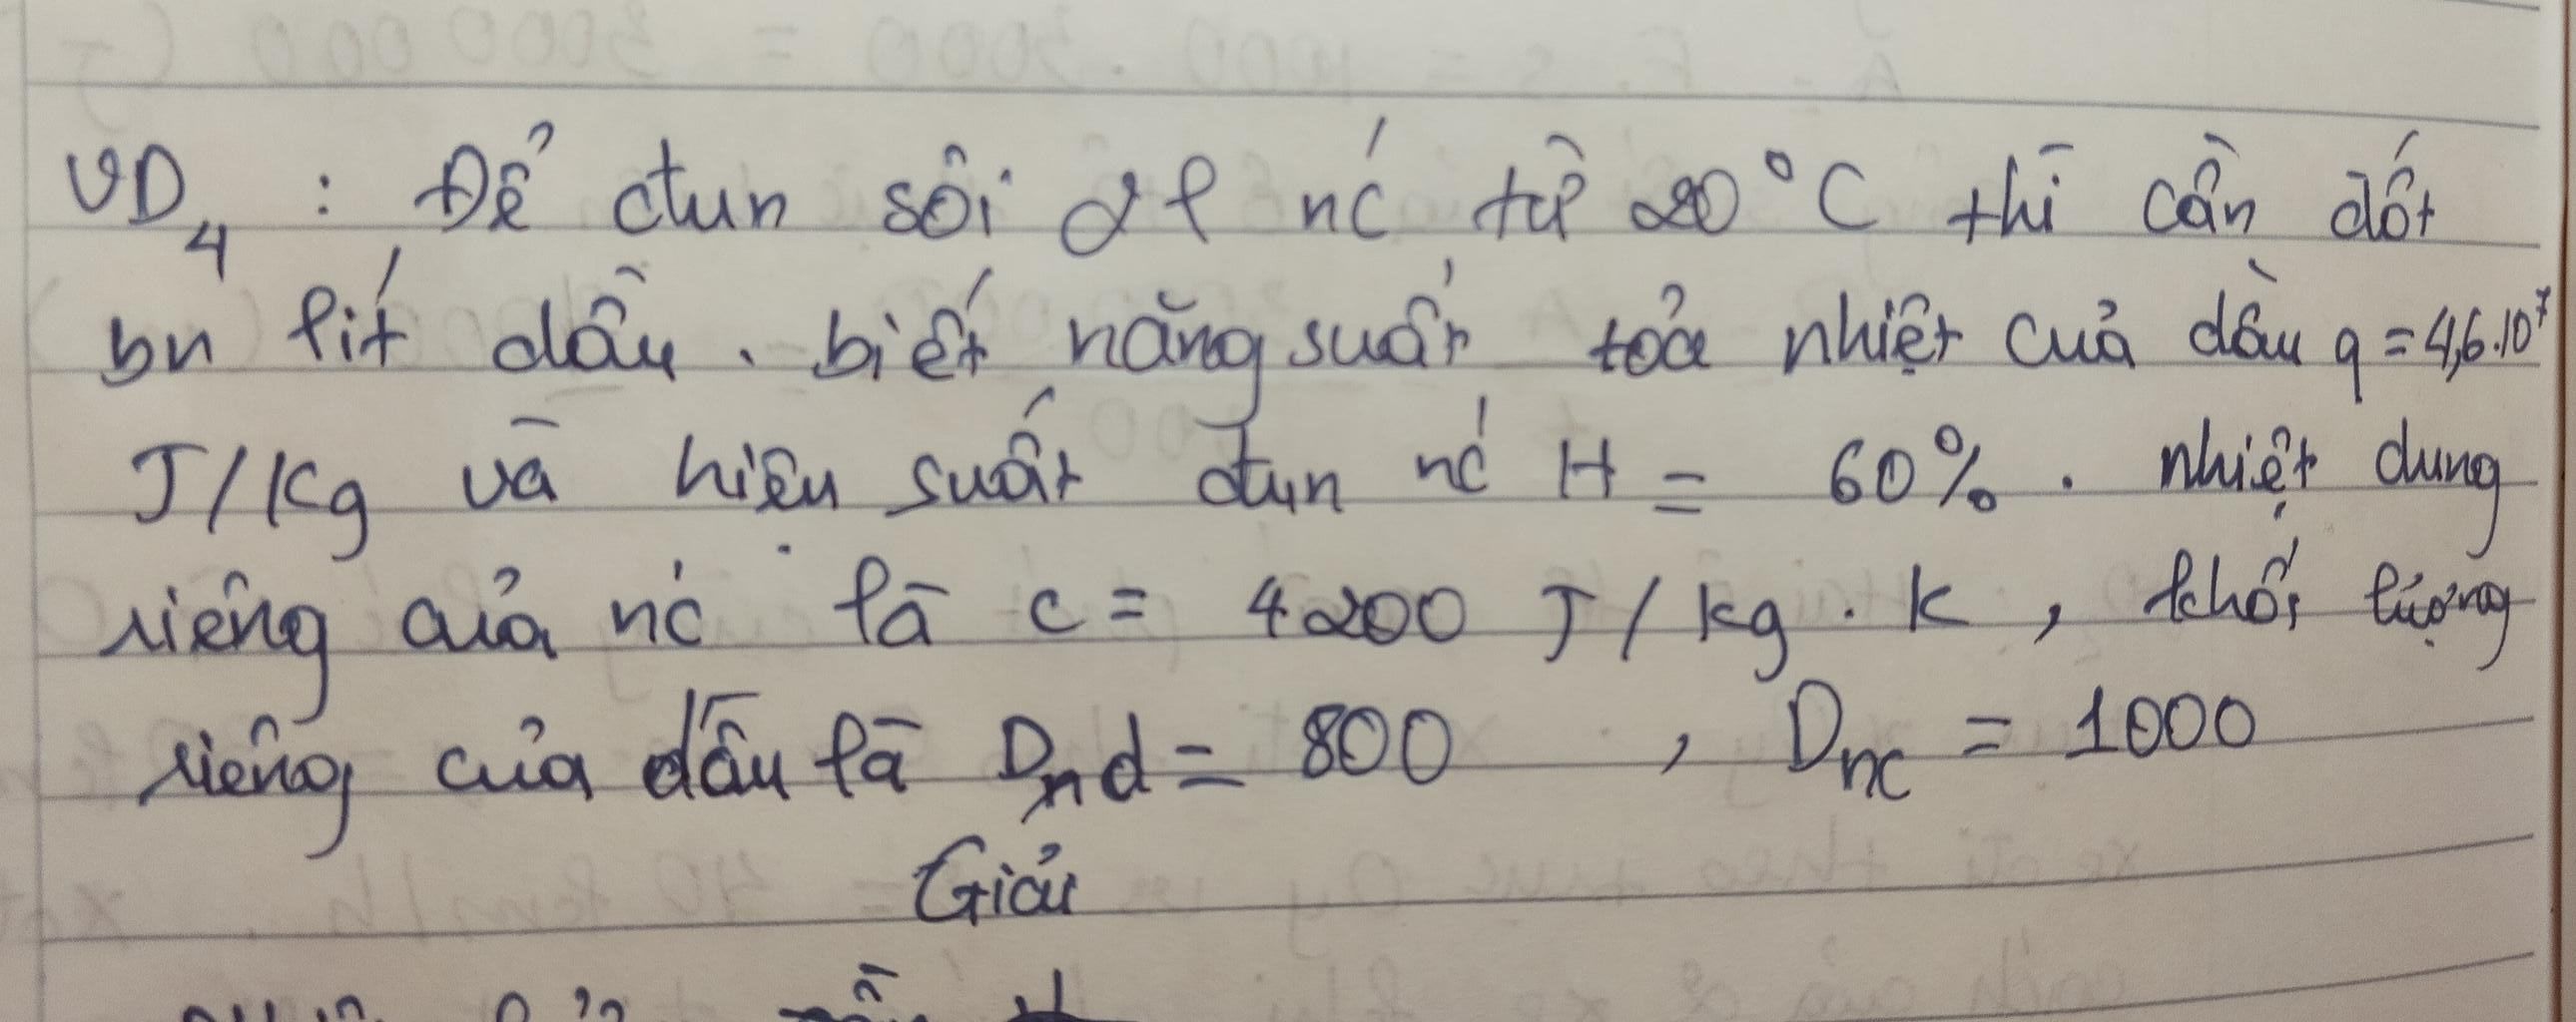 VD4 : Để đun sôi 2l nć từ 20°C thì cần đốt
bn lít dầu . biết năng suất toả nhiệt của dầu q = 4,6.10⁷
J/Kg và hiệu suất đun nć H = 60% . nhiệt dung
riêng của nć là c = 4200 J/kg.K , khối lượng
riêng của dầu là Dd = 800 , Dnc = 1000
Giải